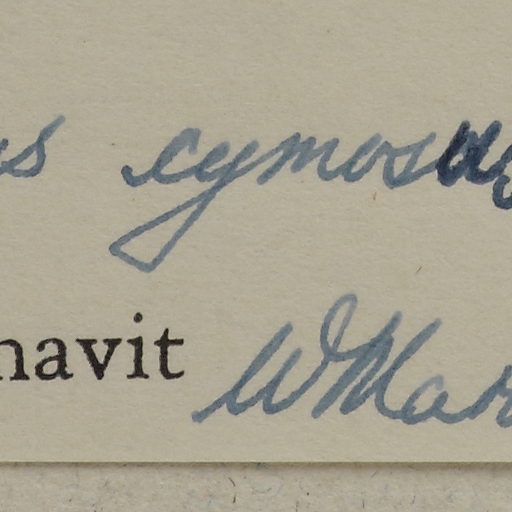 us cymosus
navit W Mar